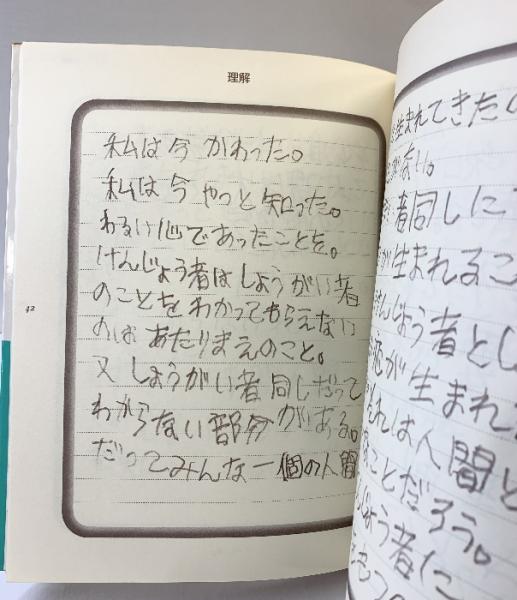 理解
私は今 かわった。
私は今 やっと知った。
わるい心であったことを。
けんじょう者は しょうがい者
のことを わかってもらえない
のは あたりまえのこと。
又 しょうがい者 同しだって
わからない部分がある。
だってみんな一個の人間
42
生まれてきた
がない。
者同しに
が生まれるこ
んじょう者とし
が生まれ
れは人間と
ことだろう。
じょう者に